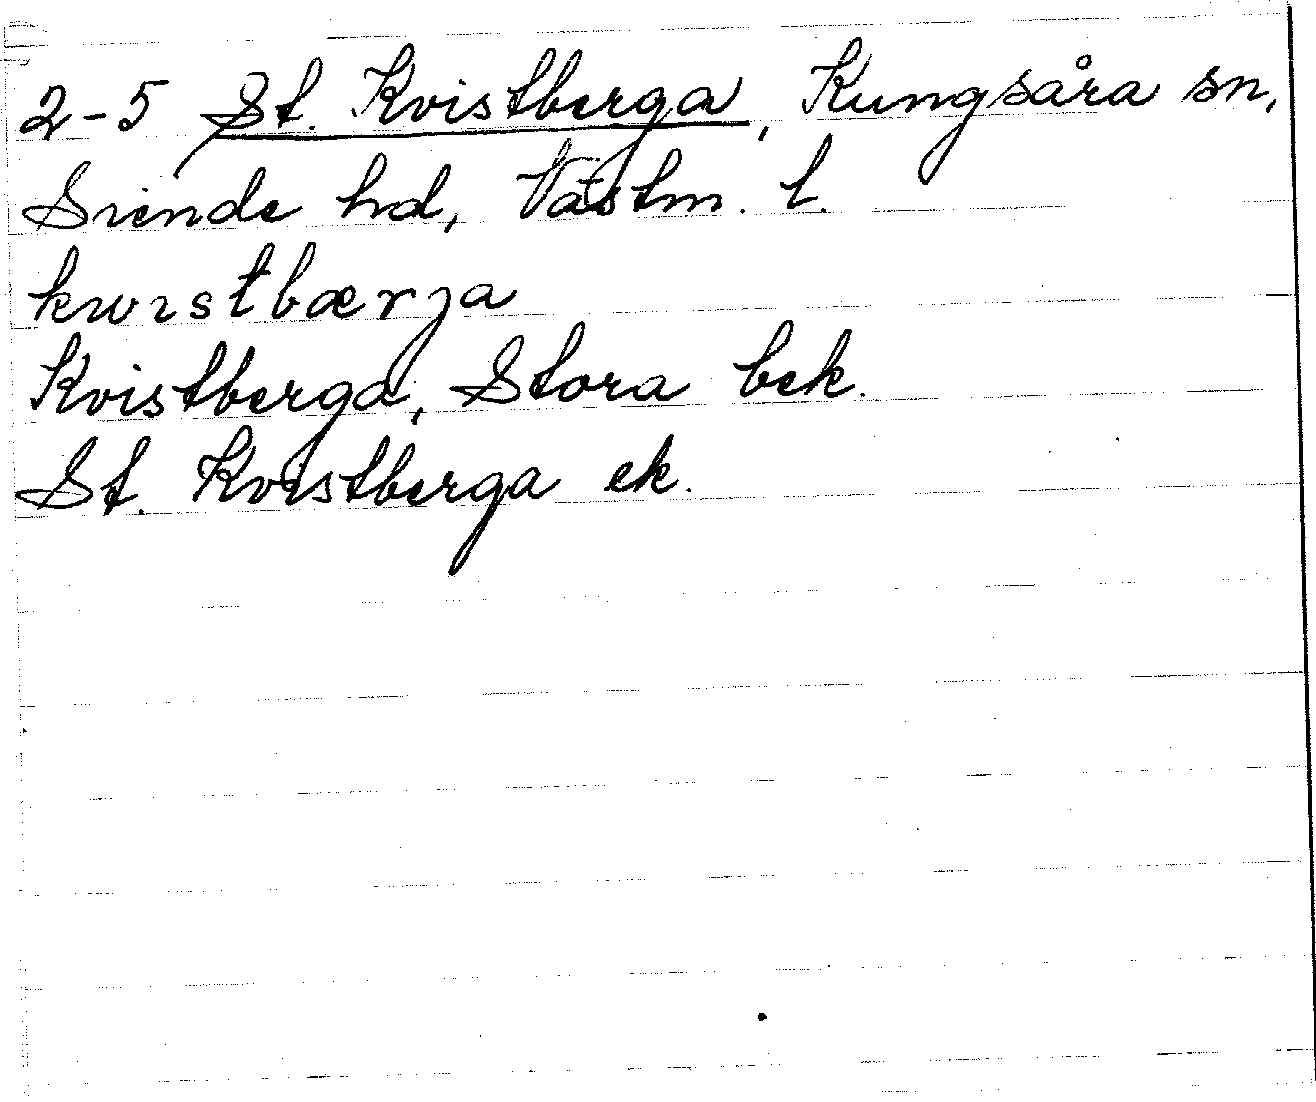 2-5 St. Kvistberga, Kungsåra sn,
Siende hd, Västm. l.
kwıstbærja
Kvistberga, Stora bek.
St. Kvistberga ek.